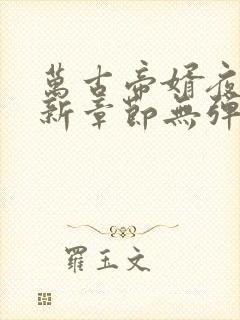 萬古帝婿夜
新章節無彈
羅玉文